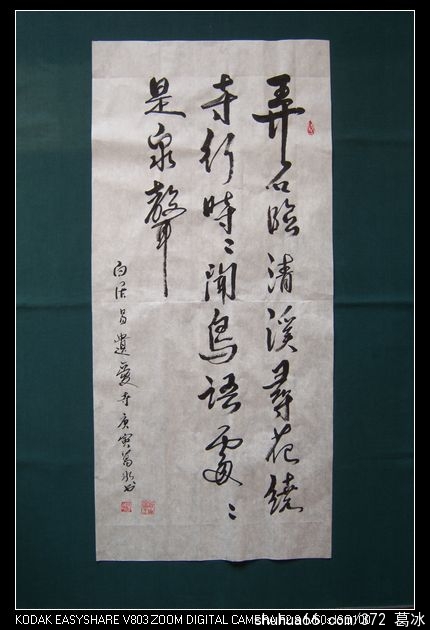 弄石臨清溪尋花繞
寺行時〻聞鳥語處〻
是泉聲
白居易遺愛寺庚寅葛冰书
KODAK EASYSHARE V803 ZOOM DIGITAL CAMERA
shuhua66.com/372 葛冰